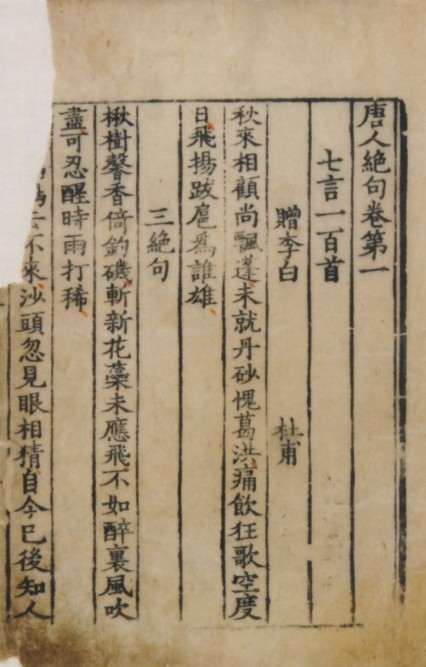 唐人絶句卷第一
七言一百首
贈李白 杜甫
秋來相顧尚飄蓬未就丹砂愧葛洪痛飲狂歌空度
日飛揚跋扈爲誰雄
三絶句
楸樹馨香倚釣磯斬新花蘂未應飛不如醉裏風吹
盡可忍醒時雨打稀
去不來沙頭忽見眼相猜自今已後知人